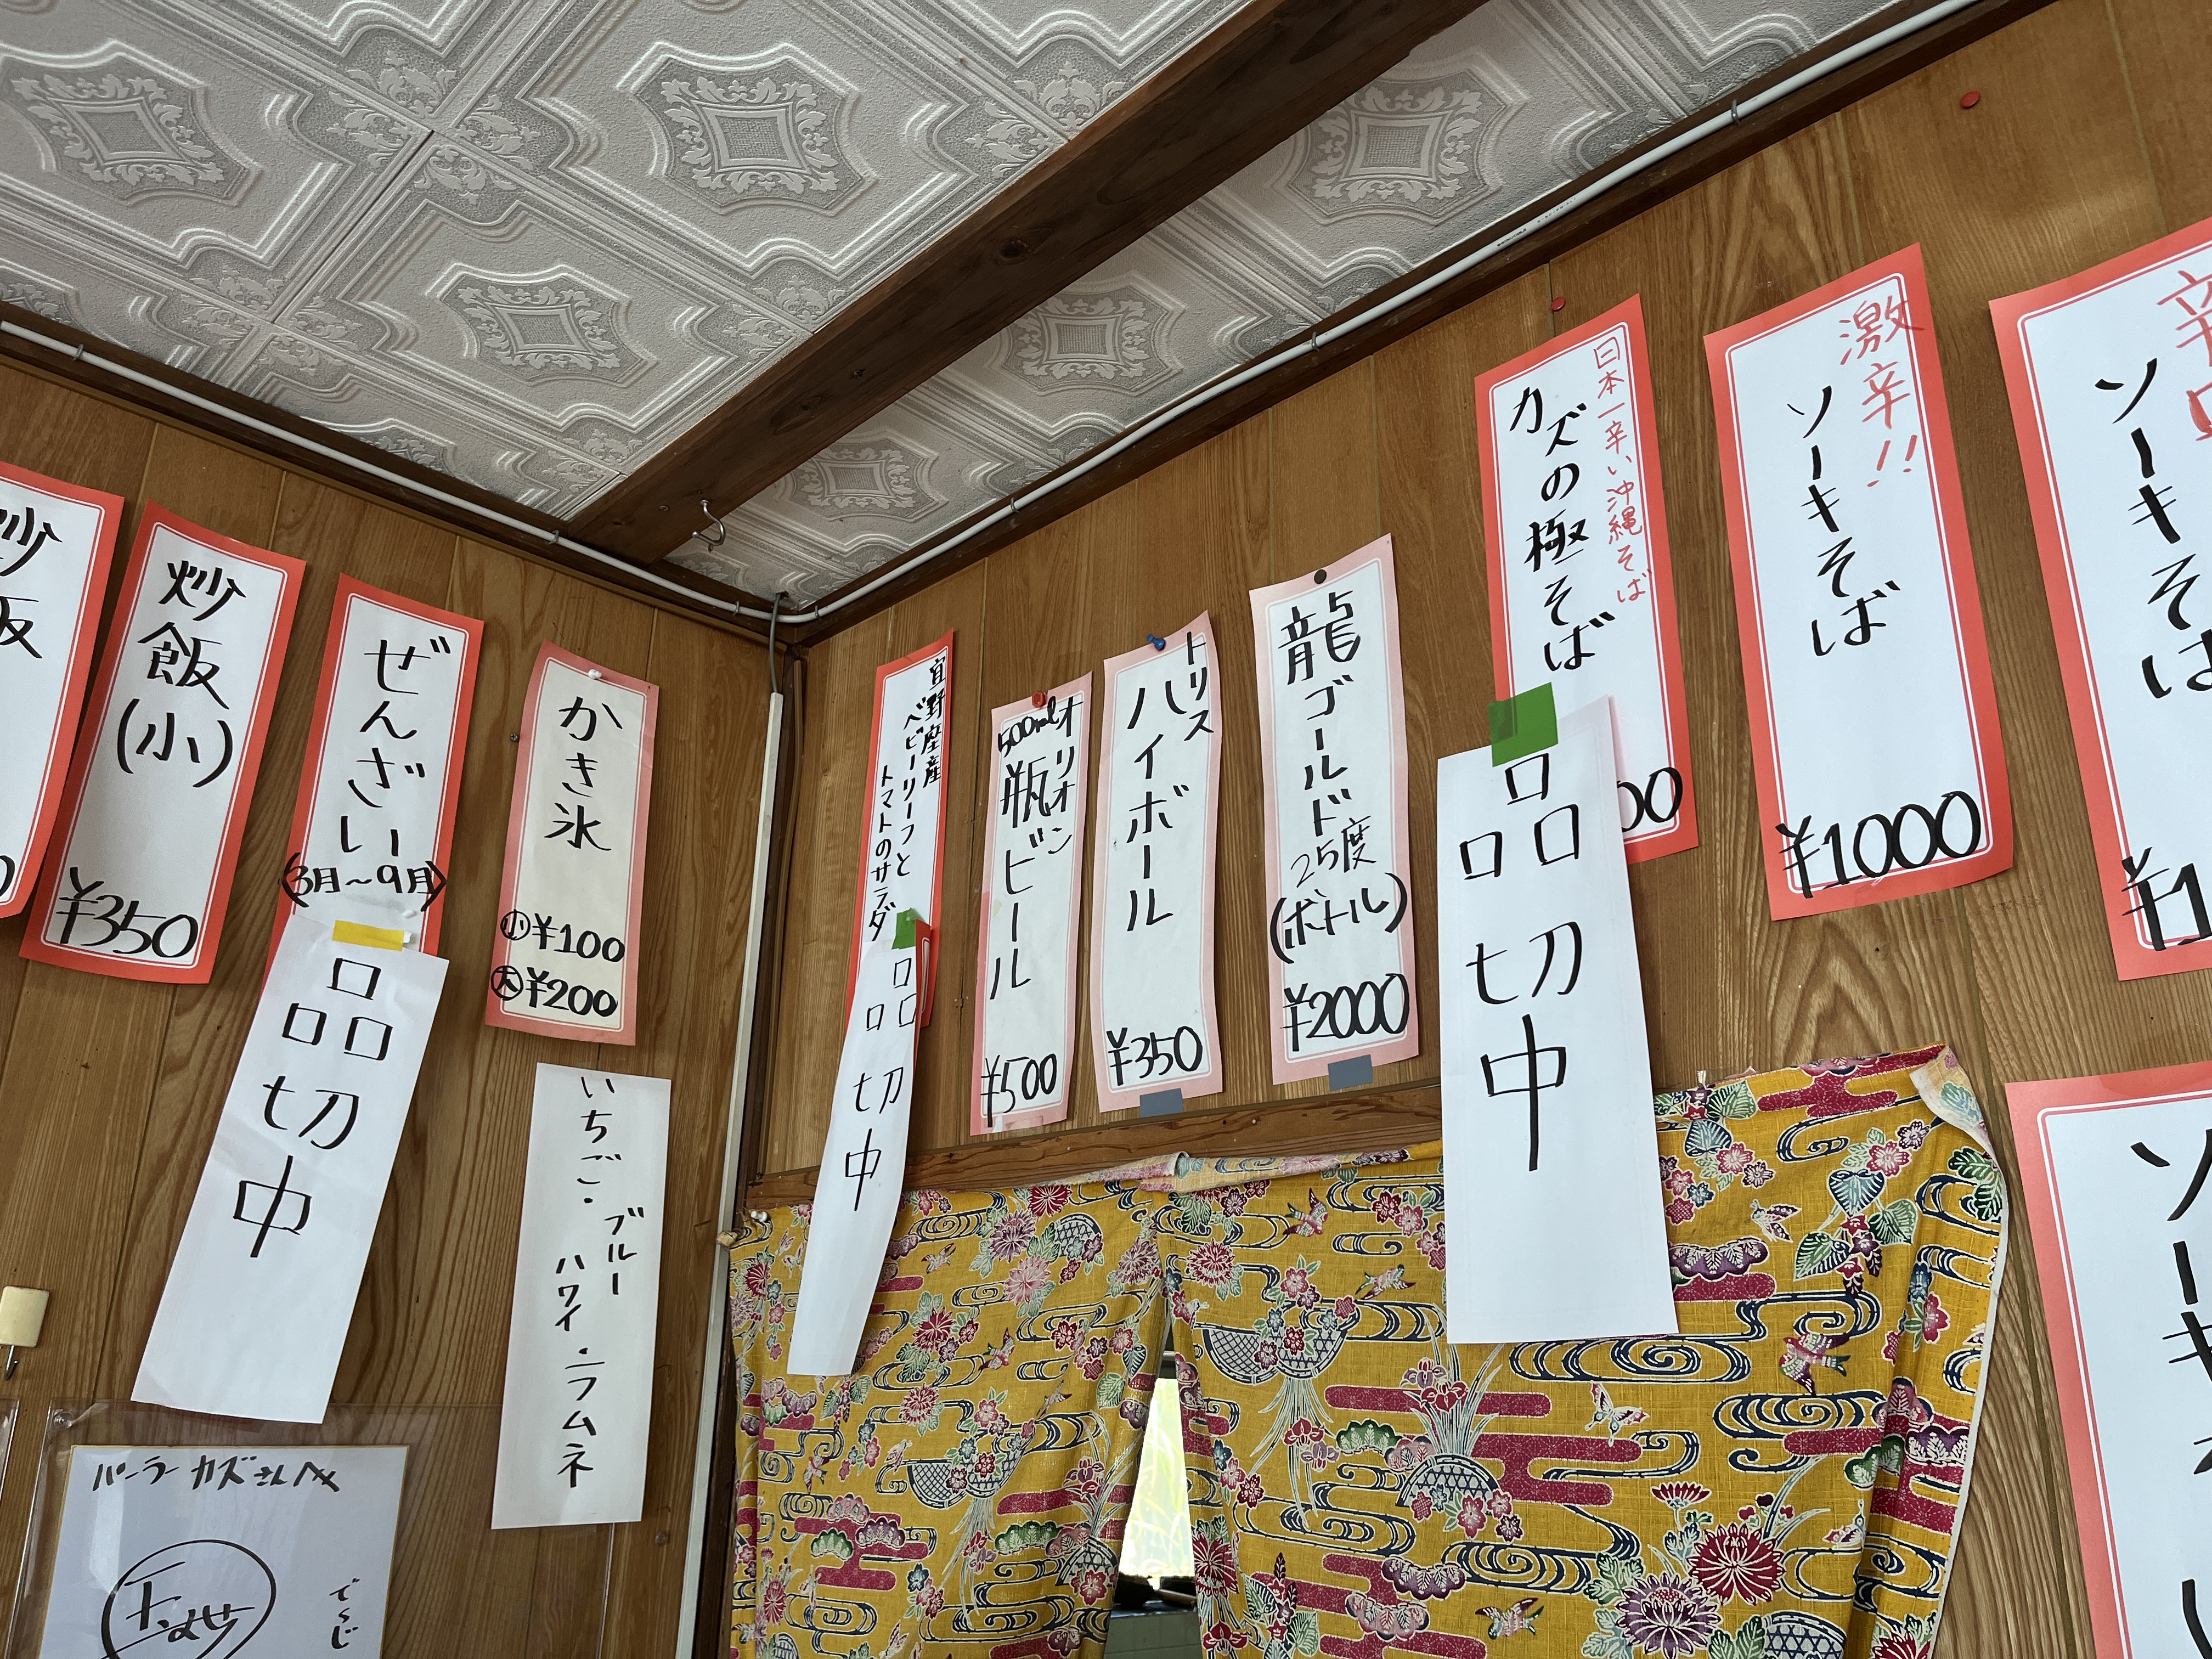 炒飯
炒飯
(小)
¥350
ぜんざい
(3月〜9月)
品切中
かき氷
小¥100
大¥200
いちご・
ブルー
ハワイ・ラムネ
パーラーカズさんへ
でーじ
宜野座産
ベビーリーフと
トマトのサラダ
品切中
オリオン
500ml
瓶ビール
¥500
トリス
ハイボール
¥350
龍ゴールド
25度
(ボトル)
¥2000
日本一辛い沖縄そば
カズの極そば
00
品切中
激辛!!
ソーキそば
¥1000
辛口
ソーキそば
¥1
ソーキ